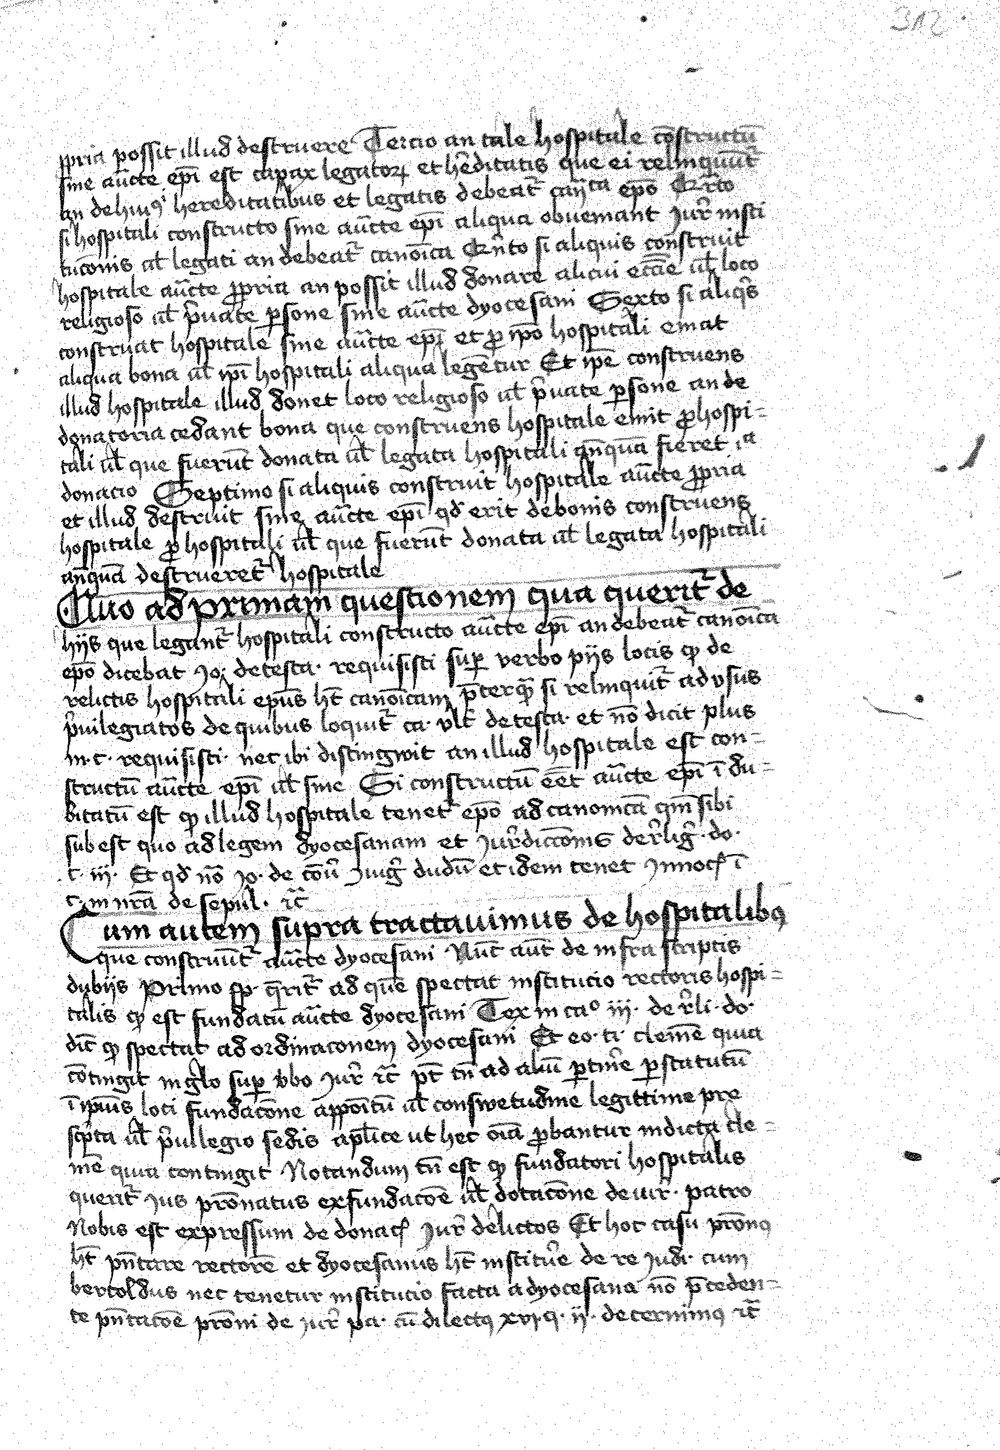 312
ꝓpria possit illud destruere Tercio an tale hospitale cōstructū
sine aūcte ep̄i est capax legatoꝝ et hēditatis que ei relinquūt᷑
an de hiuꝰ hereditatibus et legatis debeat᷑ ep̄o Qͥnto
si hospitali constructo sine aūcte ep̄i aliqua obueniant Jur̄ insti
tucōnis ul̄ legati an debeat᷑ canōica Qͥnto si aliquis construit
hospitale aūcte ꝓpria an possit illud donare alicui eccīe ul̄ loco
religioso ul̄ p̄uate ꝑsone sine aūcte dyocesani Sexto si aliqͥs
construat hospitale sine aūcte ep̄i et ꝓ ip̄o hospitali emat
aliqua bona ul̄ ip̄i hospitali aliqua legētur Et ip̄e construens
illud hospitale illud donet loco religioso ul̄ p̄uate ꝑsone an de
donatoria cedant bona que construens hospitale emit ꝓ hospi=
tali ul̄ que fuerūt donata ul̄ legata hospitali anquā fieret ia
donacio Septimo si aliquis construit hospitale aūcte ꝓpria
et illud destruit sine aūcte ep̄i qd̄ erit de bonis construens
hospitale ꝓ hospitali ul̄ que fuerūt donata ul̄ legata hospitali
anquā strueret᷑ hospitale
Quo ad primam questionem qua querit᷑ de
hijs que legant᷑ hospitali constructo aūcte ep̄i an debeat᷑ canōica
ep̄o dicebat Jo; de testa· requisisti suꝑ verbo pijs locis ꝙ de
relictis hospitali ep̄us ht̄ canōicam p̄terqȝ si relinquit᷑ ad vsus
p̄uilegiatos de quibus loquit᷑ ca· vlt̄ de testa· et nō dicit plus
in·c· requisisti· nec ibi distingwit an illud hospitale est con=
structū aūcte ep̄i ul̄ sine Si constructū eēt aūcte ep̄i ī du=
bitatū est ꝙ illud hospitale tenet᷑ ep̄o ad canonicā qm̄ sibi
subest quo ad legem dyocesanam et Jur̄dicc̄onis de r̄liḡ· do·
c· iii· Et qd̄ nō Jo· de cōu Juḡ dudū et idem tenet Jnnoc̄ ī
c· in nrā de sepul· ꝛc̄
Cum autem supra tractauimus de hospitalibꝰ
que construūt᷑ aūcte dyocesani Nūc aūt de infra scriptis
dubijs Primo sp̄ q̄rit᷑ ad quē spectat institucio rectoris hospi=
talis ꝙ est fundatū aūcte dyocesani Tex in caº iii· de r̄li· do·
dic̄ ꝙ spectat ad ordinaconem dyocesani Et eo· ti· clemē quia
cōtingit in glo suꝑ v̄bo Jur̄ ꝛc̄ pt̄ tn̄ ad aliū ꝑtin̄e ꝑ statutū
ī ip̄ius loci fundacōne appōitū ul̄ conswetudine legittime pre
scp̄ta ul̄ p̄uilegio sedis apl̄ice ut hec oīa ꝓbantur in dicta cle=
mē quia contingit Notandum tn̄ est ꝙ fundatori hospitalis
querit᷑ Jus prōnatus ex fundacōe ul̄ dotacōne de iur̄· patro
Nobis est expressum de donac̄ Jur̄ delictos Et hoc casu prōnꝰ
ht̄ pn̄tare rectorē et dyocesanus ht̄ institu̅e de re Judi· cum
bertoldus nec tenetur institucio facta a dyocesana nō p̄ceden=
te pn̄tacōe prōni de iur̄ pa· cū dilectꝰ xvi·q· ii· decernimꝰ ꝛc̄